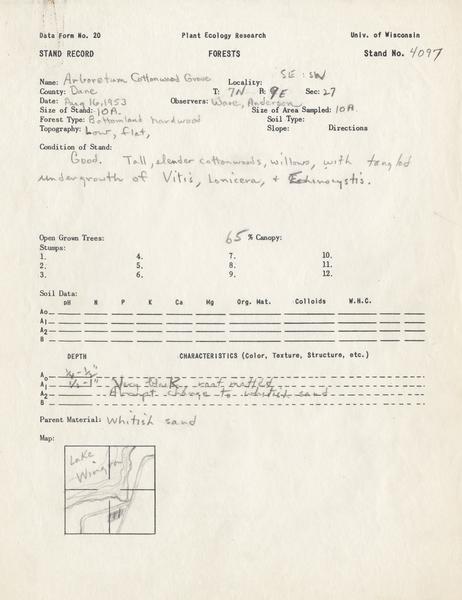 Data Form No. 20 Plant Ecology Research Univ. of Wisconsin
STAND RECORD FORESTS Stand No. 4097
Name: Arboretum Cottonwood Grove Locality: SE:SW
County: Dane T: 7N R: 9E Sec: 27
Date: Aug 16, 1953 Observers: Ware, Anderson
Size of Stand: 10A. Size of Area Sampled: 10A.
Forest Type: Bottomland hardwood Soil Type:
Topography: Low, flat, Slope: Directions
Condition of Stand:
Good. Tall, slender cottonwoods, willows, with tangled
undergrowth of Vitis, Lonicera, + Echinocystis.
Open Grown Trees: 65 % Canopy:
Stumps:
1. 4. 7. 10.
2. 5. 8. 11.
3. 6. 9. 12.
Soil Data:
pH N P K Ca Mg Org. Mat. Colloids W.H.C.
A0
A1
A2
B
DEPTH CHARACTERISTICS (Color, Texture, Structure, etc.)
A0 1/4-1/2"
A1 1/2-1" Very black, root matted
A2 Abrupt change to whitish sand
B
Parent Material: Whitish sand
Map:
Lake
Wingra